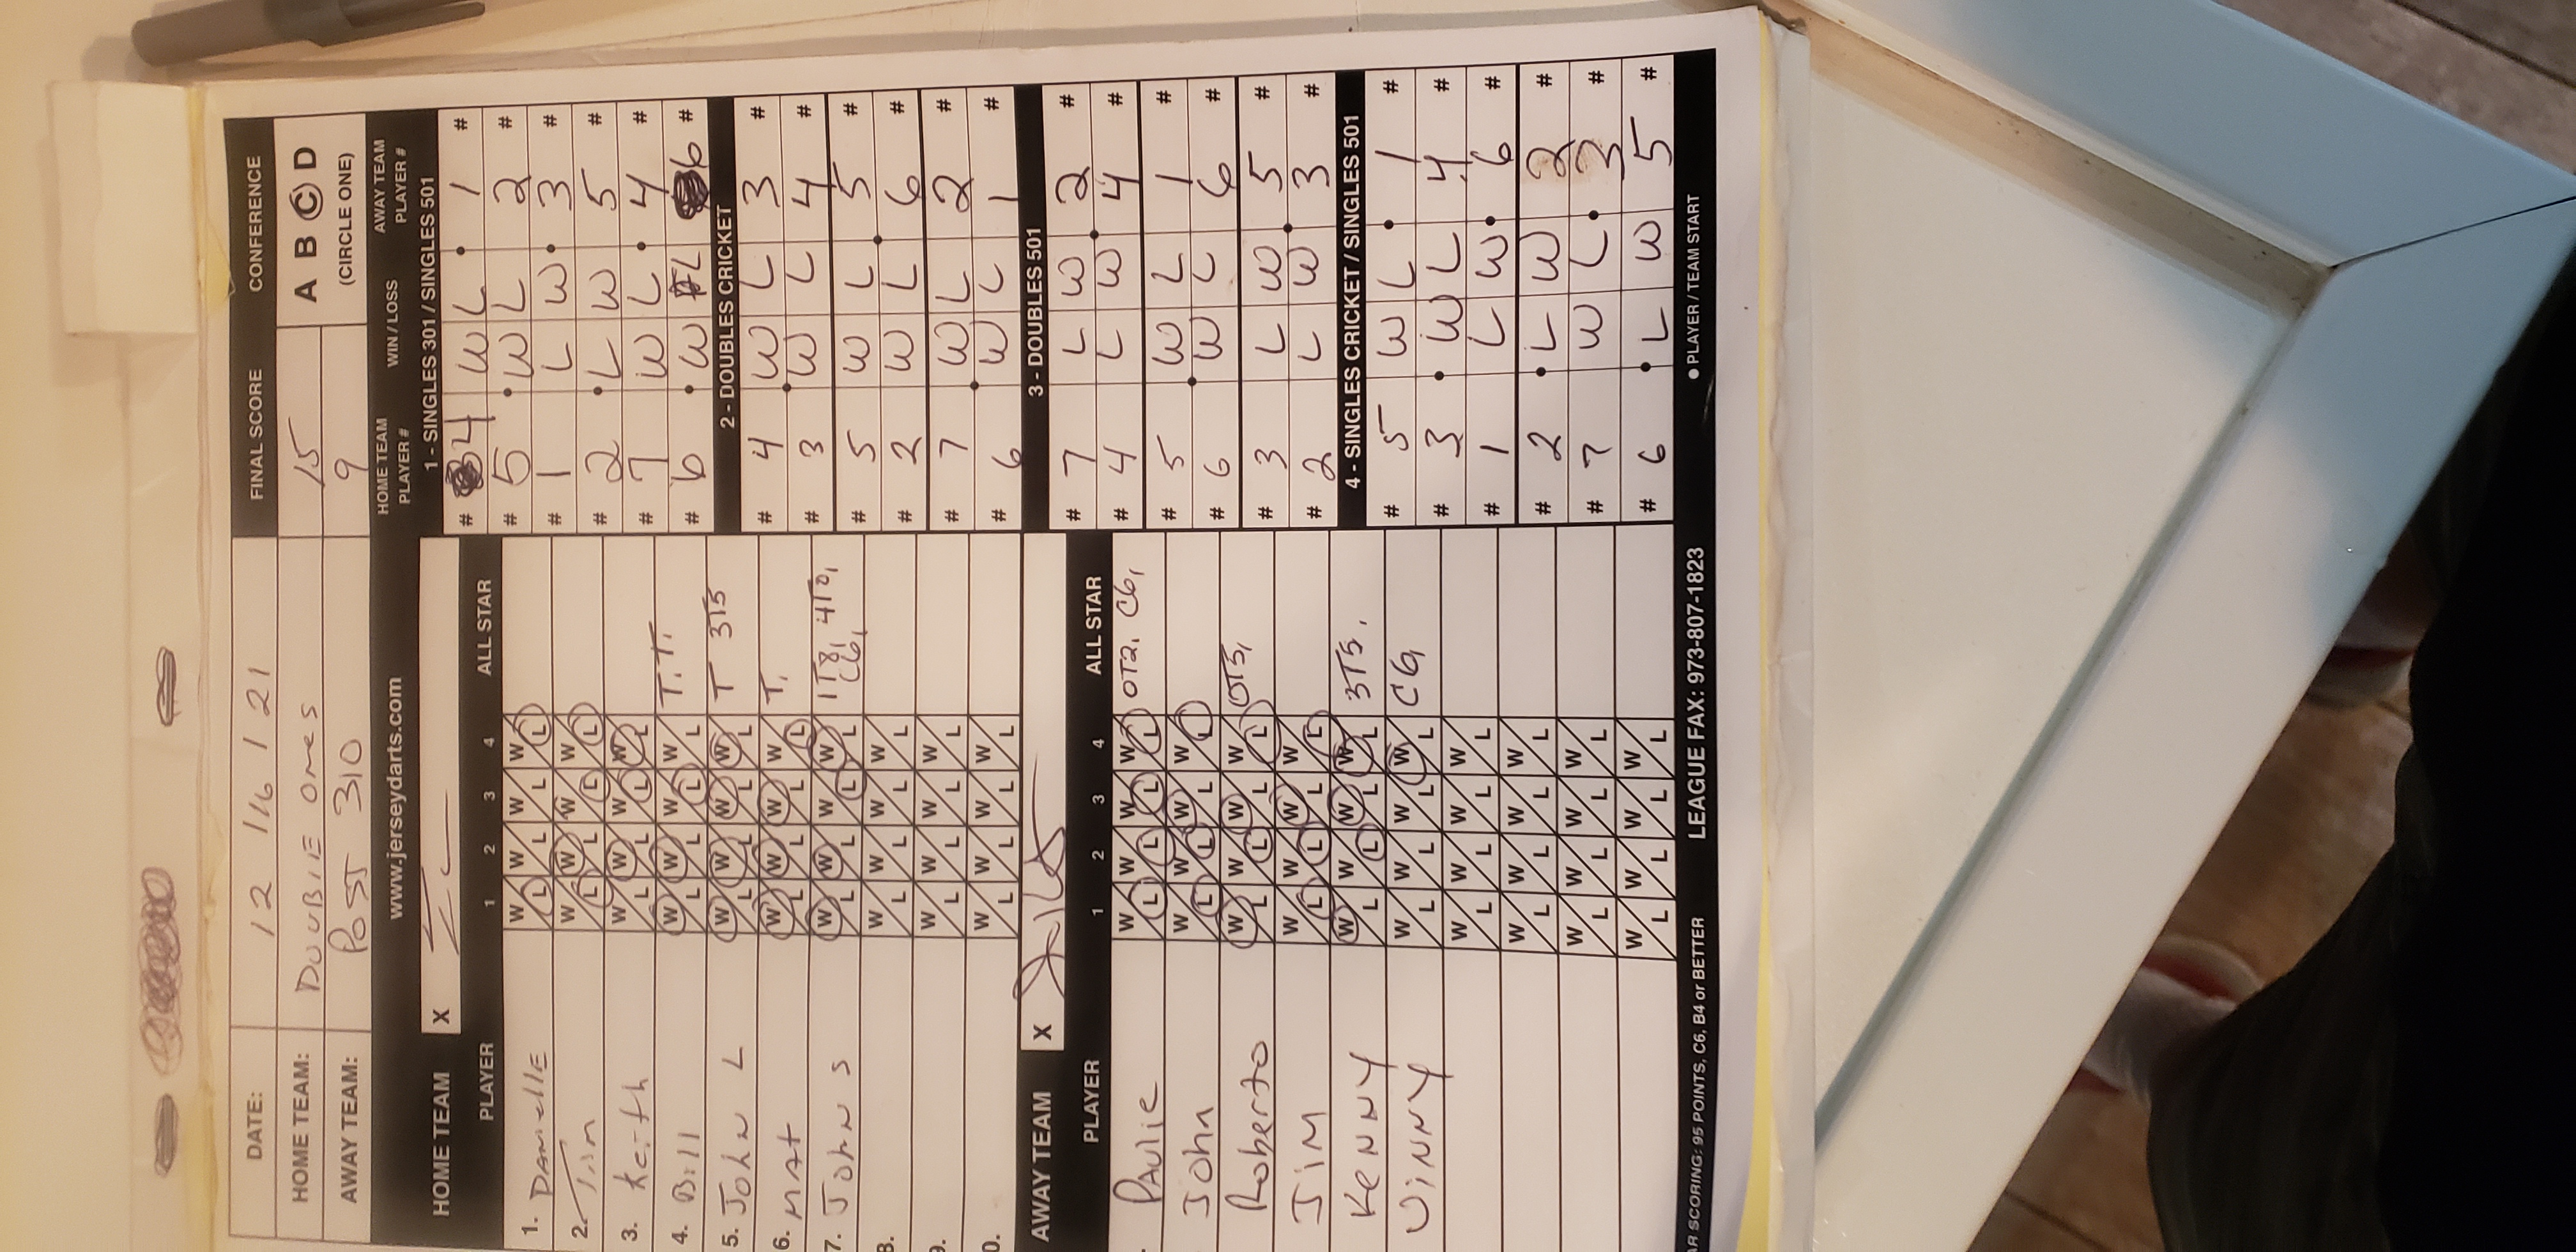 DATE: 12 / 16 / 21 FINAL SCORE CONFERENCE
HOME TEAM: DOUBLE ONES 15 A B C D
AWAY TEAM: POST 310 9 (CIRCLE ONE)
www.jerseydarts.com
HOME TEAM PLAYER # WIN / LOSS AWAY TEAM PLAYER #
HOME TEAM X
PLAYER 1 2 3 4 ALL STAR
1. DANIELLE W L W L W L W L
2. Tim W L W L W L W L
3. Keith W L W L W L W L
4. Bill W L W L W L W L T. T.
5. JOHN L W L W L W L W L T 3T5
6. MAT W L W L W L W L T.
7. JOHN S W L W L W L W L 1T8, 4T0, C6,
8. W L W L W L W L
9. W L W L W L W L
0. W L W L W L W L
AWAY TEAM X
PLAYER 1 2 3 4 ALL STAR
PAULIE W L W L W L W L OT2, C6,
John W L W L W L W L
Roberto W L W L W L W L OT5,
JIM W L W L W L W L
KENNY W L W L W L W L 3T5,
VINNY W L W L W L W L C6,
W L W L W L W L
W L W L W L W L
W L W L W L W L
W L W L W L W L
1 - SINGLES 301 / SINGLES 501
# 4 W L 1 #
# 5 W L 2 #
# 1 L W 3 #
# 2 L W 5 #
# 7 W L 4 #
# 6 W L 6 #
2 - DOUBLES CRICKET
# 4 W L 3 #
# 3 W L 4 #
# 5 W L 5 #
# 2 W L 6 #
# 7 W L 2 #
# 6 W L 1 #
3 - DOUBLES 501
# 7 L W 2 #
# 4 L W 4 #
# 5 W L 1 #
# 6 W L 6 #
# 3 L W 5 #
# 2 L W 3 #
4 - SINGLES CRICKET / SINGLES 501
# 5 W L 1 #
# 3 W L 4 #
# 1 L W 6 #
# 2 L W 2 #
# 7 W L 3 #
# 6 L W 5 #
AR SCORING: 95 POINTS, C6, B4 or BETTER LEAGUE FAX: 973-807-1823 ● PLAYER / TEAM START